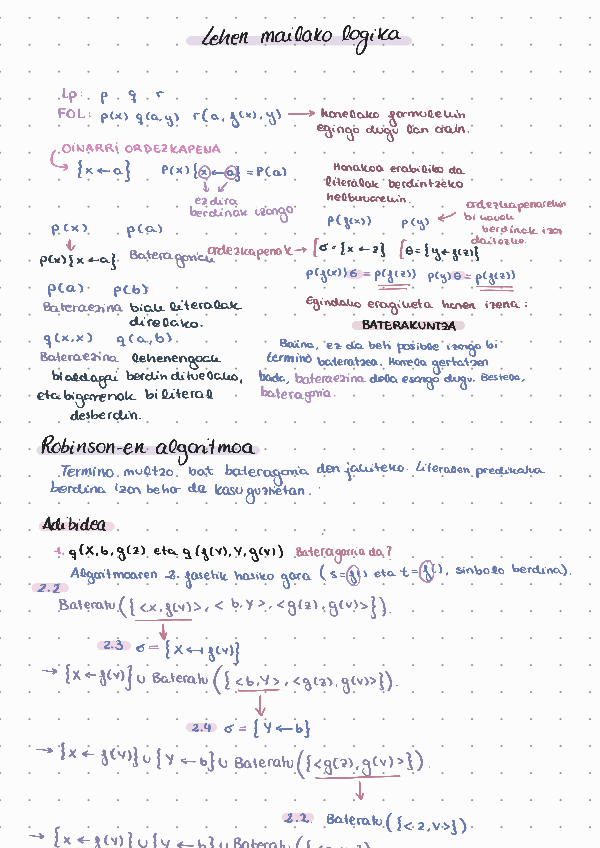 Lehen mailako logika
Lp: p q r
FOL: p(x) q(a,y) r(a, f(x), y) → honelako formulekin
egingo dugu lan orain.
OINARRI ORDEZKAPENA
{x ← a} P(x){x ← a} = P(a)
ez dira
berdinak izango.
Honakoa erabiliko da
literalak berdintzeko
helburuarekin.
p(x) p(a)
p(x){x ← a}. Bateragarria
p(a) p(b)
Bateraezina biak literalak
direlako.
q(x,x) q(a,b).
Bateraezina lehenengoak
bi aldagai berdin dituelako,
eta bigarrenak bi literal
desberdin.
p(f(x)) p(y)
ordezkapenarekin
bi hauek
berdinak izan
daitezke.
ordezkapenak → σ = {x ← z} θ = {y ← f(z)}
p(f(x))σ = p(f(z)) p(y)θ = p(f(z))
Egindako eragiketa honen izena:
BATERAKUNTZA
Baina, ez da beti posible izango bi
termino bateratzea. Honela gertatzen
bada, bateraezina dela esango dugu. Bestela,
bateragarria.
Robinson-en algoritmoa
Termino multzo bat bateragarria den jakiteko. Literalen predikatua
berdina izan behar da kasu guztietan.
Adibidea
1. q(X, b, g(z) eta q(f(v), Y, g(v)) Bateragarria da?
Algoritmoaren 2. fasetik hasiko gara (s=f() eta t=f(), sinbolo berdina).
2.2
Bateratu({<x, f(v)>, <b, Y>, <g(z), g(v)>}).
2.3 σ = {X ← f(v)}
→ {X ← f(v)} ∪ Bateratu({<b, Y>, <g(z), g(v)>}).
2.4 σ = {Y ← b}
→ {X ← f(v)} ∪ {Y ← b} ∪ Bateratu({<g(z), g(v)>}).
2.2 Bateratu({<z, v>}).
→ {X ← f(v)} ∪ {Y ← b} ∪ Bateratu